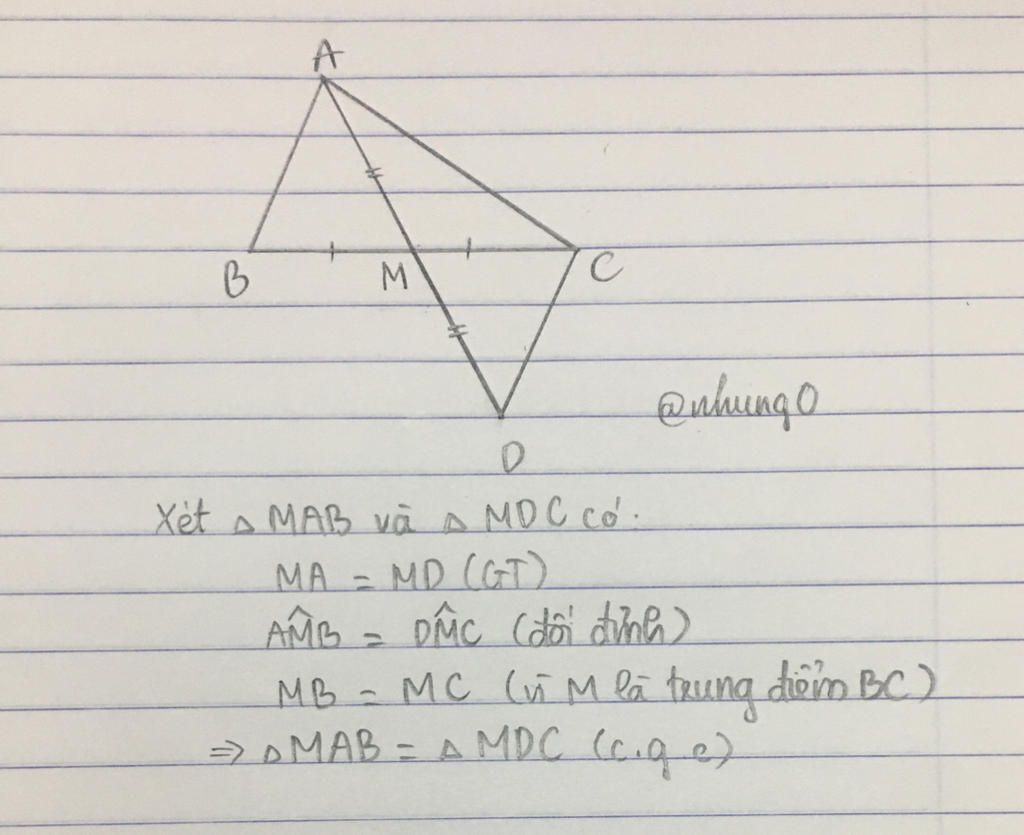 A
B
M
C
@nhung0
D
Xét △ MAB và △ MDC có.
MA = MD (GT)
AM̂B = DM̂C (đối đỉnh)
MB = MC (vì M là trung điểm BC)
⇒ △MAB = △ MDC (c.g.c)